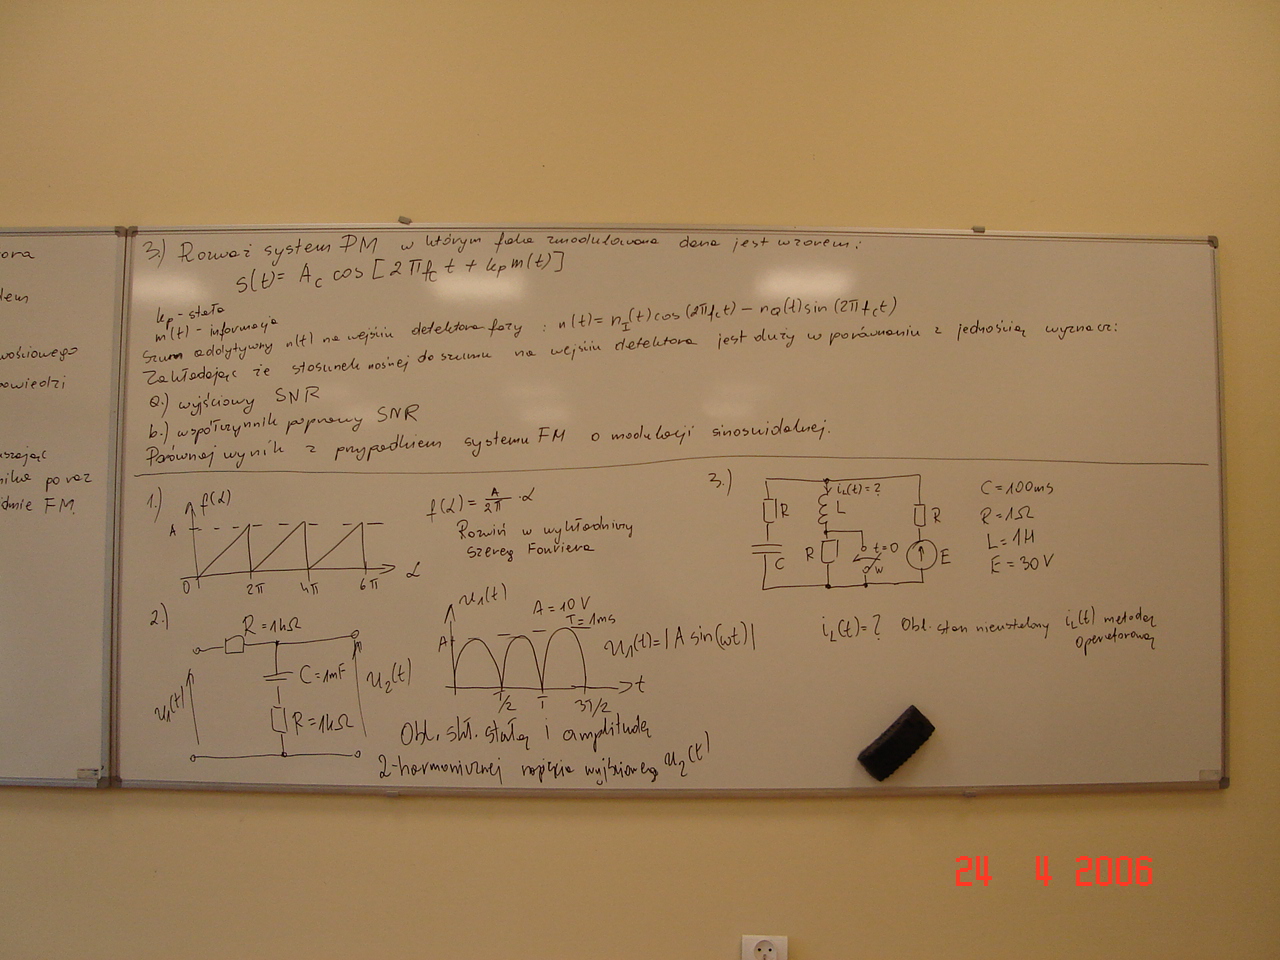 ora
dem
wościowego
powiedzi
uszając
nika poraz
dmie FM.
3.) Rozważ system PM w którym fala zmodulowana dana jest wzorem:
s(t) = A_c cos [2πf_c t + k_p m(t)]
k_p - stała
m(t) - informacja
Szum addytywny n(t) na wejściu detektora fazy : n(t) = n_I(t) cos (2πf_c t) - n_Q(t) sin (2πf_c t)
Zakładając że stosunek nośnej do szumu na wejściu detektora jest duży w porównaniu z jednością wyznacz:
a.) wyjściowy SNR
b.) współczynnik poprawy SNR
Porównaj wynik z przypadkiem systemu FM o modulacji sinosuidalnej.
1.) f(α)
A
0 2π 4π 6π α
f(α) = A/2π · α
Rozwiń w wykładniczy
szereg Fouriera
2.) R = 1kΩ
C = 1mF
R = 1kΩ
u₁(t)
u₂(t)
u₁(t)
A
A = 10 V
T = 1ms
u₁(t) = |A sin(ωt)|
T/2 T 3T/2 t
Obl. skł. stałą i amplitudę
2-harmonicznej napięcia wyjściowego u₂(t)
3.) i_L(t) = ?
R L R
C R t=0 W E
C = 100ms
R = 1Ω
L = 1H
E = 30 V
i_L(t) = ? Obl. stan nieustalony i_L(t) metodą
operatorową
24 4 2006